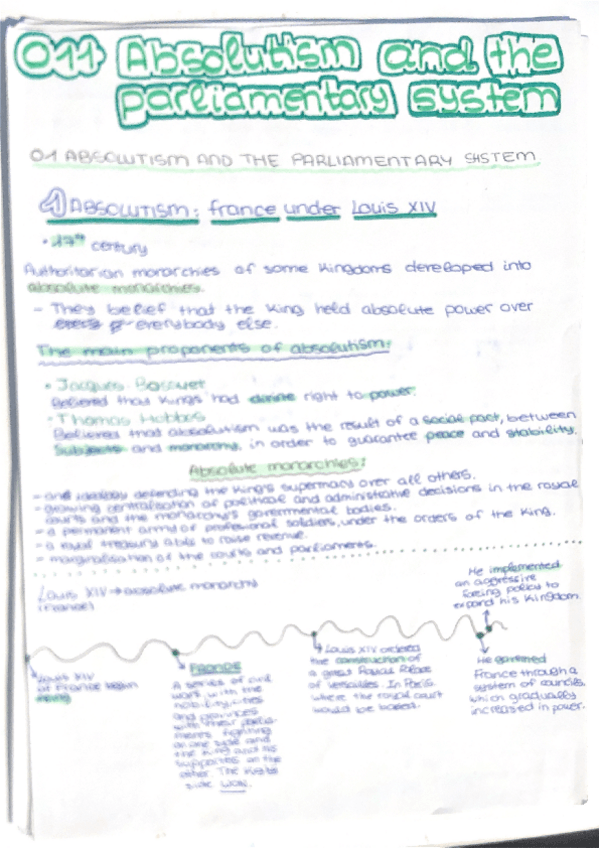 011 Absolutism and the
parliamentary system
01 ABSOLUTISM AND THE PARLIAMENTARY SISTEM
1 ABSOLUTISM: france under Louis XIV
• 17th century
Authoritarian monarchies of some Kingdoms developed into
absolute monarchies.
- They belief that the King held absolute power over
everybody else.
The main proponents of absolutism:
• Jacques Bossuet
Believed that Kings had divine right to power.
• Thomas Hobbes
Believed that absolutism was the result of a social pact, between
Subjects and monarchy, in order to guarantee peace and stability.
Absolute monarchies:
- and ideology defending the King's supermacy over all others.
- growing centralisation of political and administrative decisions in the royal
courts and the monarchy's governmental bodies.
- a permanent army of profesional soldiers, under the orders of the King.
- a royal treasury able to raise revenue.
- marginalisation of the courts and parliaments.
Louis XIV → absolute monarchy
(France)
He implemented
an aggressive
foreing policy to
expand his Kingdom.
Louis XIV
of France begin
FRONDE
A series of civil
wars with the
nobility, cities
and provinces
with their parlia-
ments fighting
on one side and
the King and his
supporters on the
other. The King's
side won.
Louis XIV ordered
the construction of
a great Royal Palace
of Versailles. In Paris
where the royal court
would be based.
He
France through a
system of councils,
which gradually
increased in power.